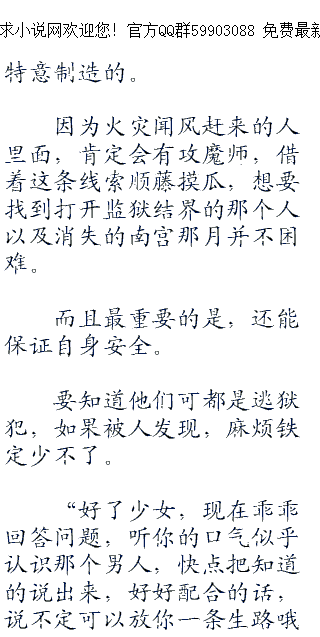 求小说网欢迎您! 官方QQ群59903088 免费最新
特意制造的。
因为火灾闻风赶来的人
里面，肯定会有攻魔师，借
着这条线索顺藤摸瓜，想要
找到打开监狱结界的那个人
以及消失的南宫那月并不困
难。
而且最重要的是，还能
保证自身安全。
要知道他们可都是逃狱
犯，如果被人发现，麻烦铁
定少不了。
“好了少女，现在乖乖
回答问题，听你的口气似乎
认识那个男人，快点把知道
的说出来，好好配合的话，
说不定可以放你一条生路哦